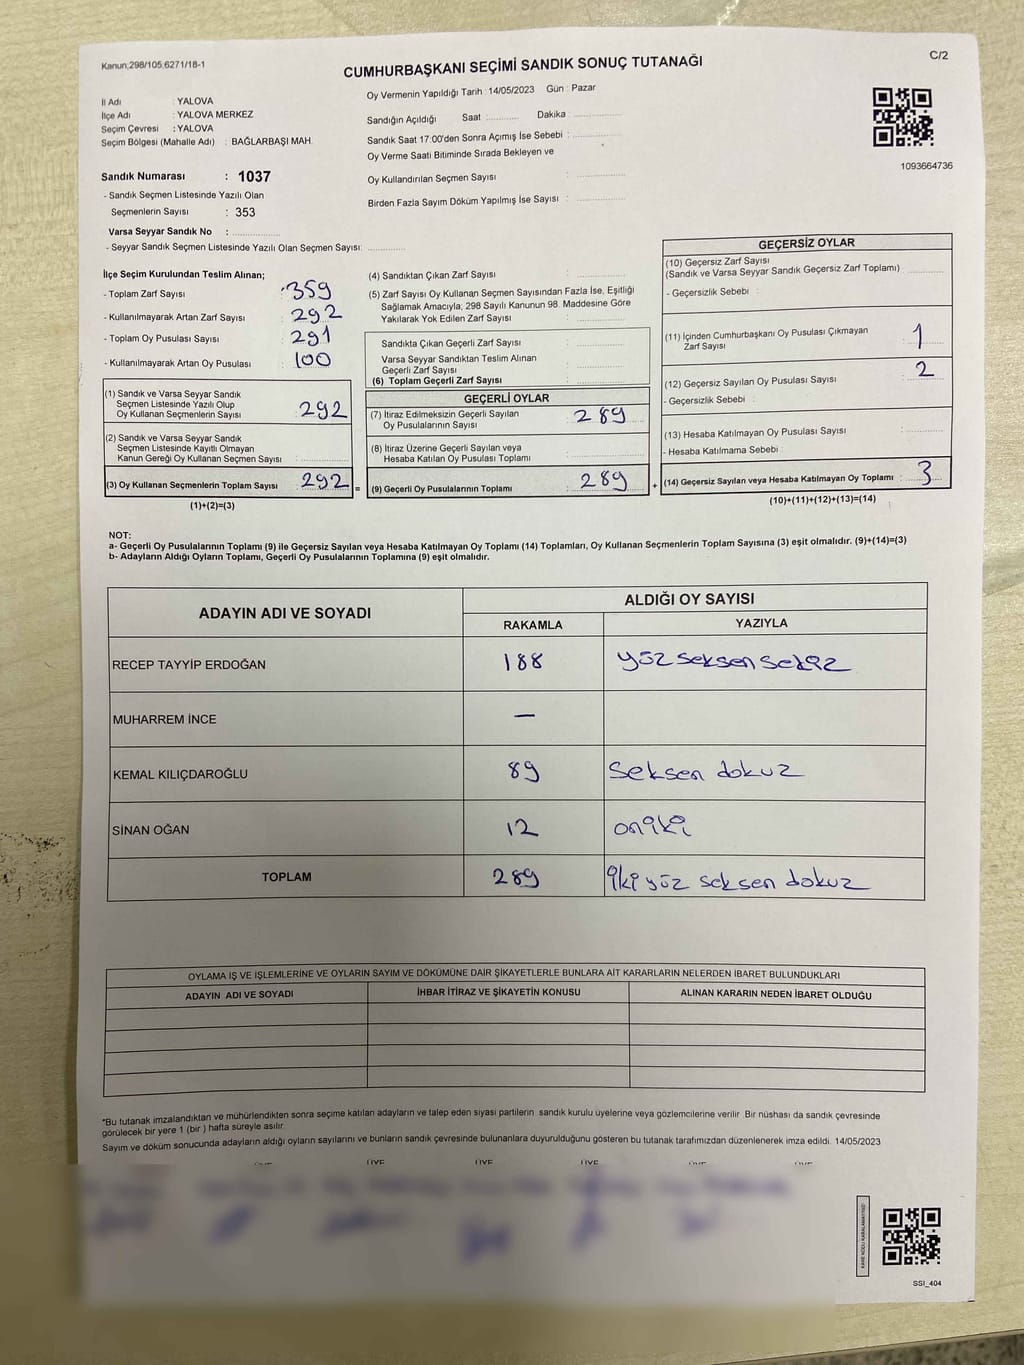 Kanun;298/105,6271/18-1
C/2
CUMHURBAŞKANI SEÇİMİ SANDIK SONUÇ TUTANAĞI
İl Adı : YALOVA
İlçe Adı : YALOVA MERKEZ
Seçim Çevresi : YALOVA
Seçim Bölgesi (Mahalle Adı) : BAĞLARBAŞI MAH.
Sandık Numarası : 1037
- Sandık Seçmen Listesinde Yazılı Olan
Seçmenlerin Sayısı : 353
Varsa Seyyar Sandık No :
- Seyyar Sandık Seçmen Listesinde Yazılı Olan Seçmen Sayısı:
Oy Vermenin Yapıldığı Tarih : 14/05/2023 Gün : Pazar
Sandığın Açıldığı Saat Dakika :
Sandık Saat 17:00'den Sonra Açımış İse Sebebi :
Oy Verme Saati Bitiminde Sırada Bekleyen ve
Oy Kullandırılan Seçmen Sayısı :
Birden Fazla Sayım Döküm Yapılmış İse Sayısı :
1093664736
İlçe Seçim Kurulundan Teslim Alınan;
- Toplam Zarf Sayısı : 359
- Kullanılmayarak Artan Zarf Sayısı : 292
- Toplam Oy Pusulası Sayısı : 291
- Kullanılmayarak Artan Oy Pusulası : 100
(1) Sandık ve Varsa Seyyar Sandık
Seçmen Listesinde Yazılı Olup
Oy Kullanan Seçmenlerin Sayısı : 292
(2) Sandık ve Varsa Seyyar Sandık
Seçmen Listesinde Kayıtlı Olmayan
Kanun Gereği Oy Kullanan Seçmen Sayısı :
(3) Oy Kullanan Seçmenlerin Toplam Sayısı : 292 =
(1)+(2)=(3)
(4) Sandıktan Çıkan Zarf Sayısı :
(5) Zarf Sayısı Oy Kullanan Seçmen Sayısından Fazla İse, Eşitliği
Sağlamak Amacıyla; 298 Sayılı Kanunun 98. Maddesine Göre
Yakılarak Yok Edilen Zarf Sayısı :
Sandıkta Çıkan Geçerli Zarf Sayısı :
Varsa Seyyar Sandıktan Teslim Alınan
Geçerli Zarf Sayısı :
(6) Toplam Geçerli Zarf Sayısı :
GEÇERLİ OYLAR
(7) İtiraz Edilmeksizin Geçerli Sayılan
Oy Pusulalarının Sayısı : 289
(8) İtiraz Üzerine Geçerli Sayılan veya
Hesaba Katılan Oy Pusulası Toplamı :
(9) Geçerli Oy Pusulalarının Toplamı : 289 +
GEÇERSİZ OYLAR
(10) Geçersiz Zarf Sayısı
(Sandık ve Varsa Seyyar Sandık Geçersiz Zarf Toplamı) :
- Geçersizlik Sebebi :
(11) İçinden Cumhurbaşkanı Oy Pusulası Çıkmayan
Zarf Sayısı : 1
(12) Geçersiz Sayılan Oy Pusulası Sayısı : 2
- Geçersizlik Sebebi :
(13) Hesaba Katılmayan Oy Pusulası Sayısı :
- Hesaba Katılmama Sebebi :
(14) Geçersiz Sayılan veya Hesaba Katılmayan Oy Toplamı : 3
(10)+(11)+(12)+(13)=(14)
NOT:
a- Geçerli Oy Pusulalarının Toplamı (9) ile Geçersiz Sayılan veya Hesaba Katılmayan Oy Toplamı (14) Toplamları, Oy Kullanan Seçmenlerin Toplam Sayısına (3) eşit olmalıdır. (9)+(14)=(3)
b- Adayların Aldığı Oyların Toplamı, Geçerli Oy Pusulalarının Toplamına (9) eşit olmalıdır.
ADAYIN ADI VE SOYADI ALDIĞI OY SAYISI
RAKAMLA YAZIYLA
RECEP TAYYİP ERDOĞAN 188 yüz seksen sekiz
MUHARREM İNCE —
KEMAL KILIÇDAROĞLU 89 Seksen dokuz
SİNAN OĞAN 12 oniki
TOPLAM 289 İki yüz seksen dokuz
OYLAMA İŞ VE İŞLEMLERİNE VE OYLARIN SAYIM VE DÖKÜMÜNE DAİR ŞİKAYETLERLE BUNLARA AİT KARARLARIN NELERDEN İBARET BULUNDUKLARI
ADAYIN ADI VE SOYADI İHBAR İTİRAZ VE ŞİKAYETİN KONUSU ALINAN KARARIN NEDEN İBARET OLDUĞU
*Bu tutanak imzalandıktan ve mühürlendikten sonra seçime katılan adayların ve talep eden siyasi partilerin sandık kurulu üyelerine veya gözlemcilerine verilir. Bir nüshası da sandık çevresinde
görülecek bir yere 1 (bir) hafta süreyle asılır.
Sayım ve döküm sonucunda adayların aldığı oyların sayılarını ve bunların sandık çevresinde bulunanlara duyurulduğunu gösteren bu tutanak tarafımızdan düzenlenerek imza edildi. 14/05/2023
ÜYE ÜYE ÜYE ÜYE ÜYE
KARE KODU KARALAMAYINIZ!
SSI_404